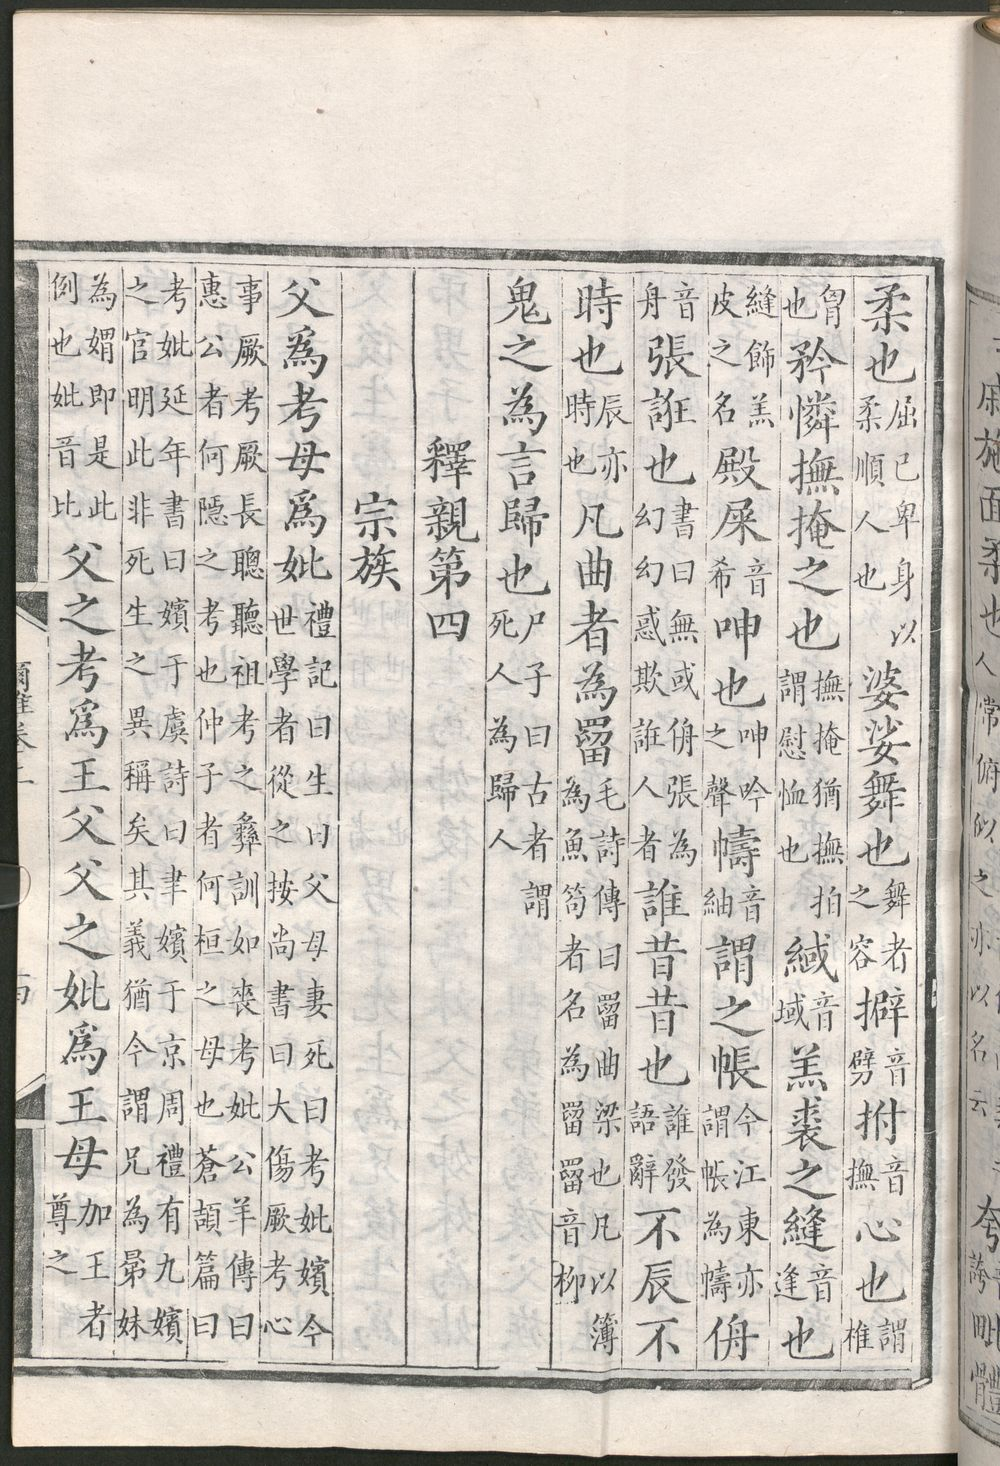 柔也屈己卑身以柔順人也婆娑舞也舞者之容擗音劈拊音撫心也謂椎
胷也矜憐撫掩之也撫掩猶撫拍謂慰恤也緎音域羔裘之縫音逢也
縫飾羔皮之名殿屎音希呻也呻吟之聲幬音紬謂之帳今江東亦謂帳為幬侜
音舟張誑也書曰無或侜張為幻幻惑欺誑人者誰昔昔也誰發語辭不辰不
時也辰亦時也凡曲者為罶毛詩傳曰罶曲梁也凡以簿為魚笱者名為罶罶音柳
鬼之為言歸也尸子曰古者謂死人為歸人
釋親第四
宗族
父為考母為妣禮記曰生曰父母妻死曰考妣嬪今世學者從之按尚書曰大傷厥考心
事厥考厥長聰聽祖考之彝訓如喪考妣公羊傳曰惠公者何隱之考也仲子者何桓之母也蒼頡篇曰
考妣延年書曰嬪于虞詩曰聿嬪于京周禮有九嬪之官明此非死生之異稱矣其義猶今謂兄為晜妹
為媦即是此例也妣音比父之考為王父父之妣為王母加王者尊之
爾雅卷上
戚施面柔也
人常俯似之亦以名云
夸
毗
體